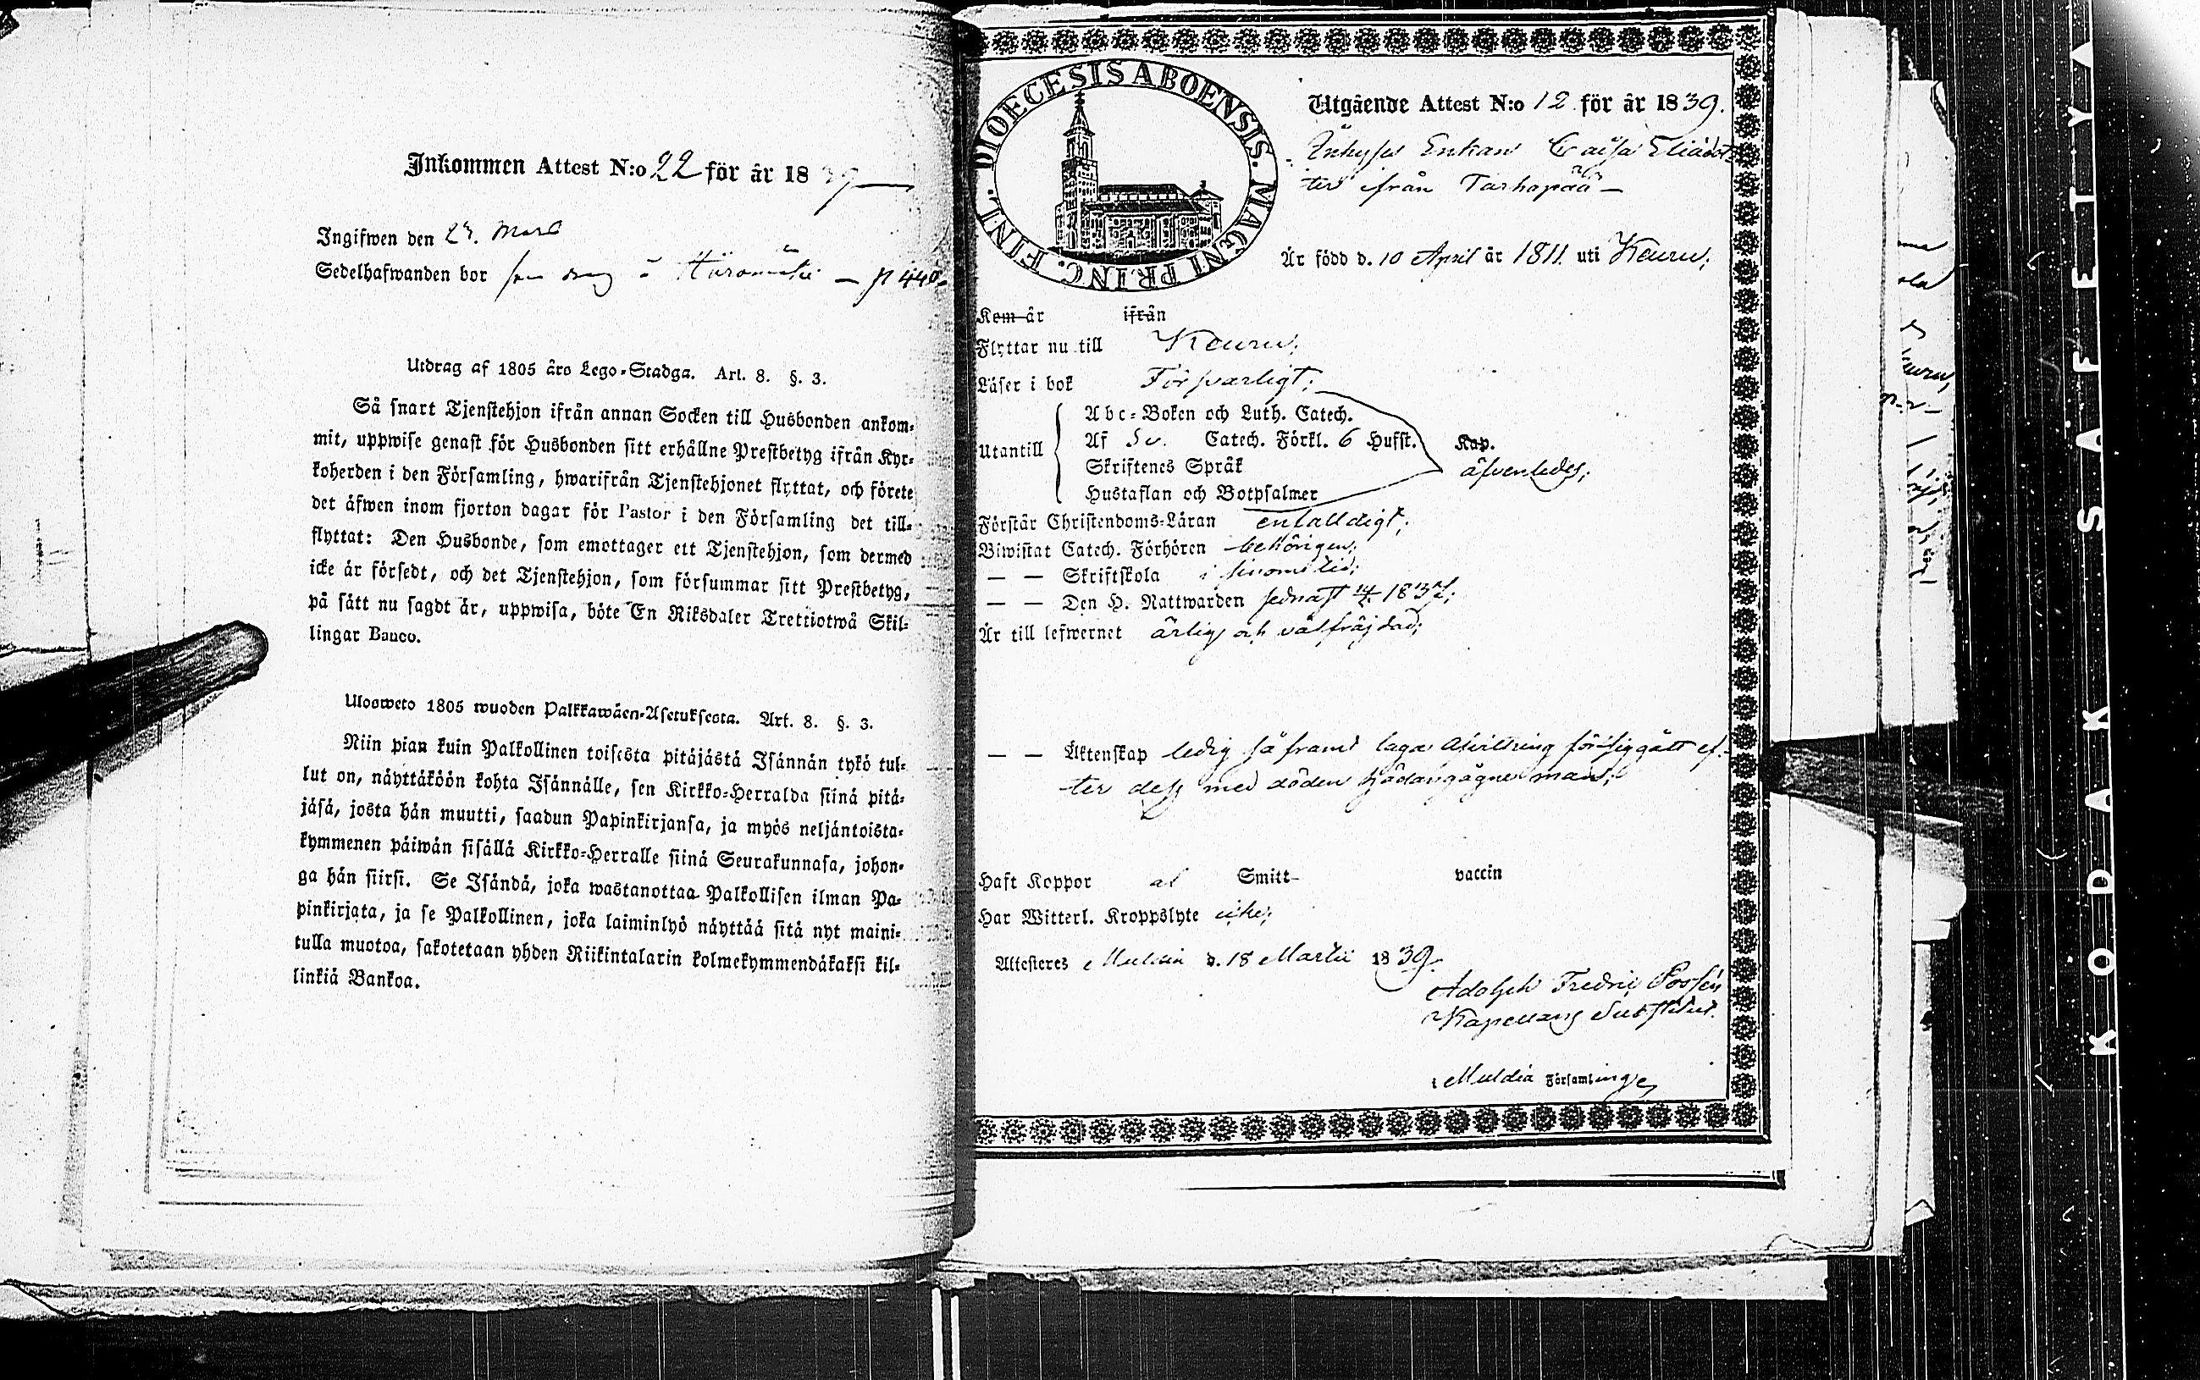 Inkommen Attest N:o 22 för år 1839
Ingifwen den 23. Mars
Sedelhafwanden bor som dräng å
Utdrag af 1805 års Lego-Stadga. Art. 8. §. 3.
Så snart Tjenstehjon ifrån annan Socken till Husbonden ankom-
mit, uppwise genast för Husbonden sitt erhållne Prestbetyg ifrån Kyr-
koherden i den Församling, hwarifrån Tjenstehjonet flyttat, och förete
det äfwen inom fjorton dagar för Pastor i den Församling det till-
flyttat: Den Husbonde, som emottager ett Tjenstehjon, som dermed
icke är försedt, och det Tjenstehjon, som försummar sitt Prestbetyg,
på sätt nu sagdt är, uppwisa, böte En Riksdaler Trettiotwå Skil-
lingar Banco.
Ulosweto 1805 wuoden Palkkawäen-Asetuksesta. Art. 8. §. 3.
Niin pian kuin Palkollinen toisesta pitäjästä Isännän tykö tul-
lut on, näyttäköön kohta Isännälle, sen Kirkko-Herralda siinä pitä-
jäsä, josta hän muutti, saadun Papinkirjansa, ja myös neljäntoista-
kymmenen päiwän sisällä Kirkko-Herralle siinä Seurakunnasa, johon-
ga hän siirsi. Se Isändä, joka wastanottaa Palkollisen ilman Pa-
pinkirjata, ja se Palkollinen, joka laiminlyö näyttää sitä nyt maini-
tulla muotoa, sakotetaan yhden Riikintalarin kolmekymmendäkaksi kil-
linkiä Bankoa.
DIOECESIS ABOENSIS. MAGNI PRINC. FINL.
Utgående Attest N:o 12 för år 1839.
Inhyses Enkan Caisa Eliædot
ter ifrån Tarhapää
Är född d. 10 April år 1811. uti Keuru;
Kom år ifrån
Flyttar nu till Keuru;
Läser i bok Försvarligt;
Utantill
Abc-Boken och Luth. Catech.
Af Sv. Catech. Förkl. 6 Hufst. Kap.
Skriftenes Språk äfvenledes;
Hustaflan och Botpsalmer
Förstår Christendoms-Läran enfalldigt;
Biwistat Catech. Förhören behörigen;
— — Skriftskola i sinom tid;
— — Den H. Nattwarden sednast 1837;
Är till lefwernet ärlig och välfräjdad;
— — Äktenskap ledig så framt laga Afvittring försiggått ef-
ter dess med döden hädangågne man;
Haft Koppor Smitt vaccin
Har Witterl. Kroppslyte icke;
Attesteres Muldia d. 18 Martii 1839.
Adolph Fredric Possén
Kapellans Substitut.
i Muldia Församling
KODAK SAFETY